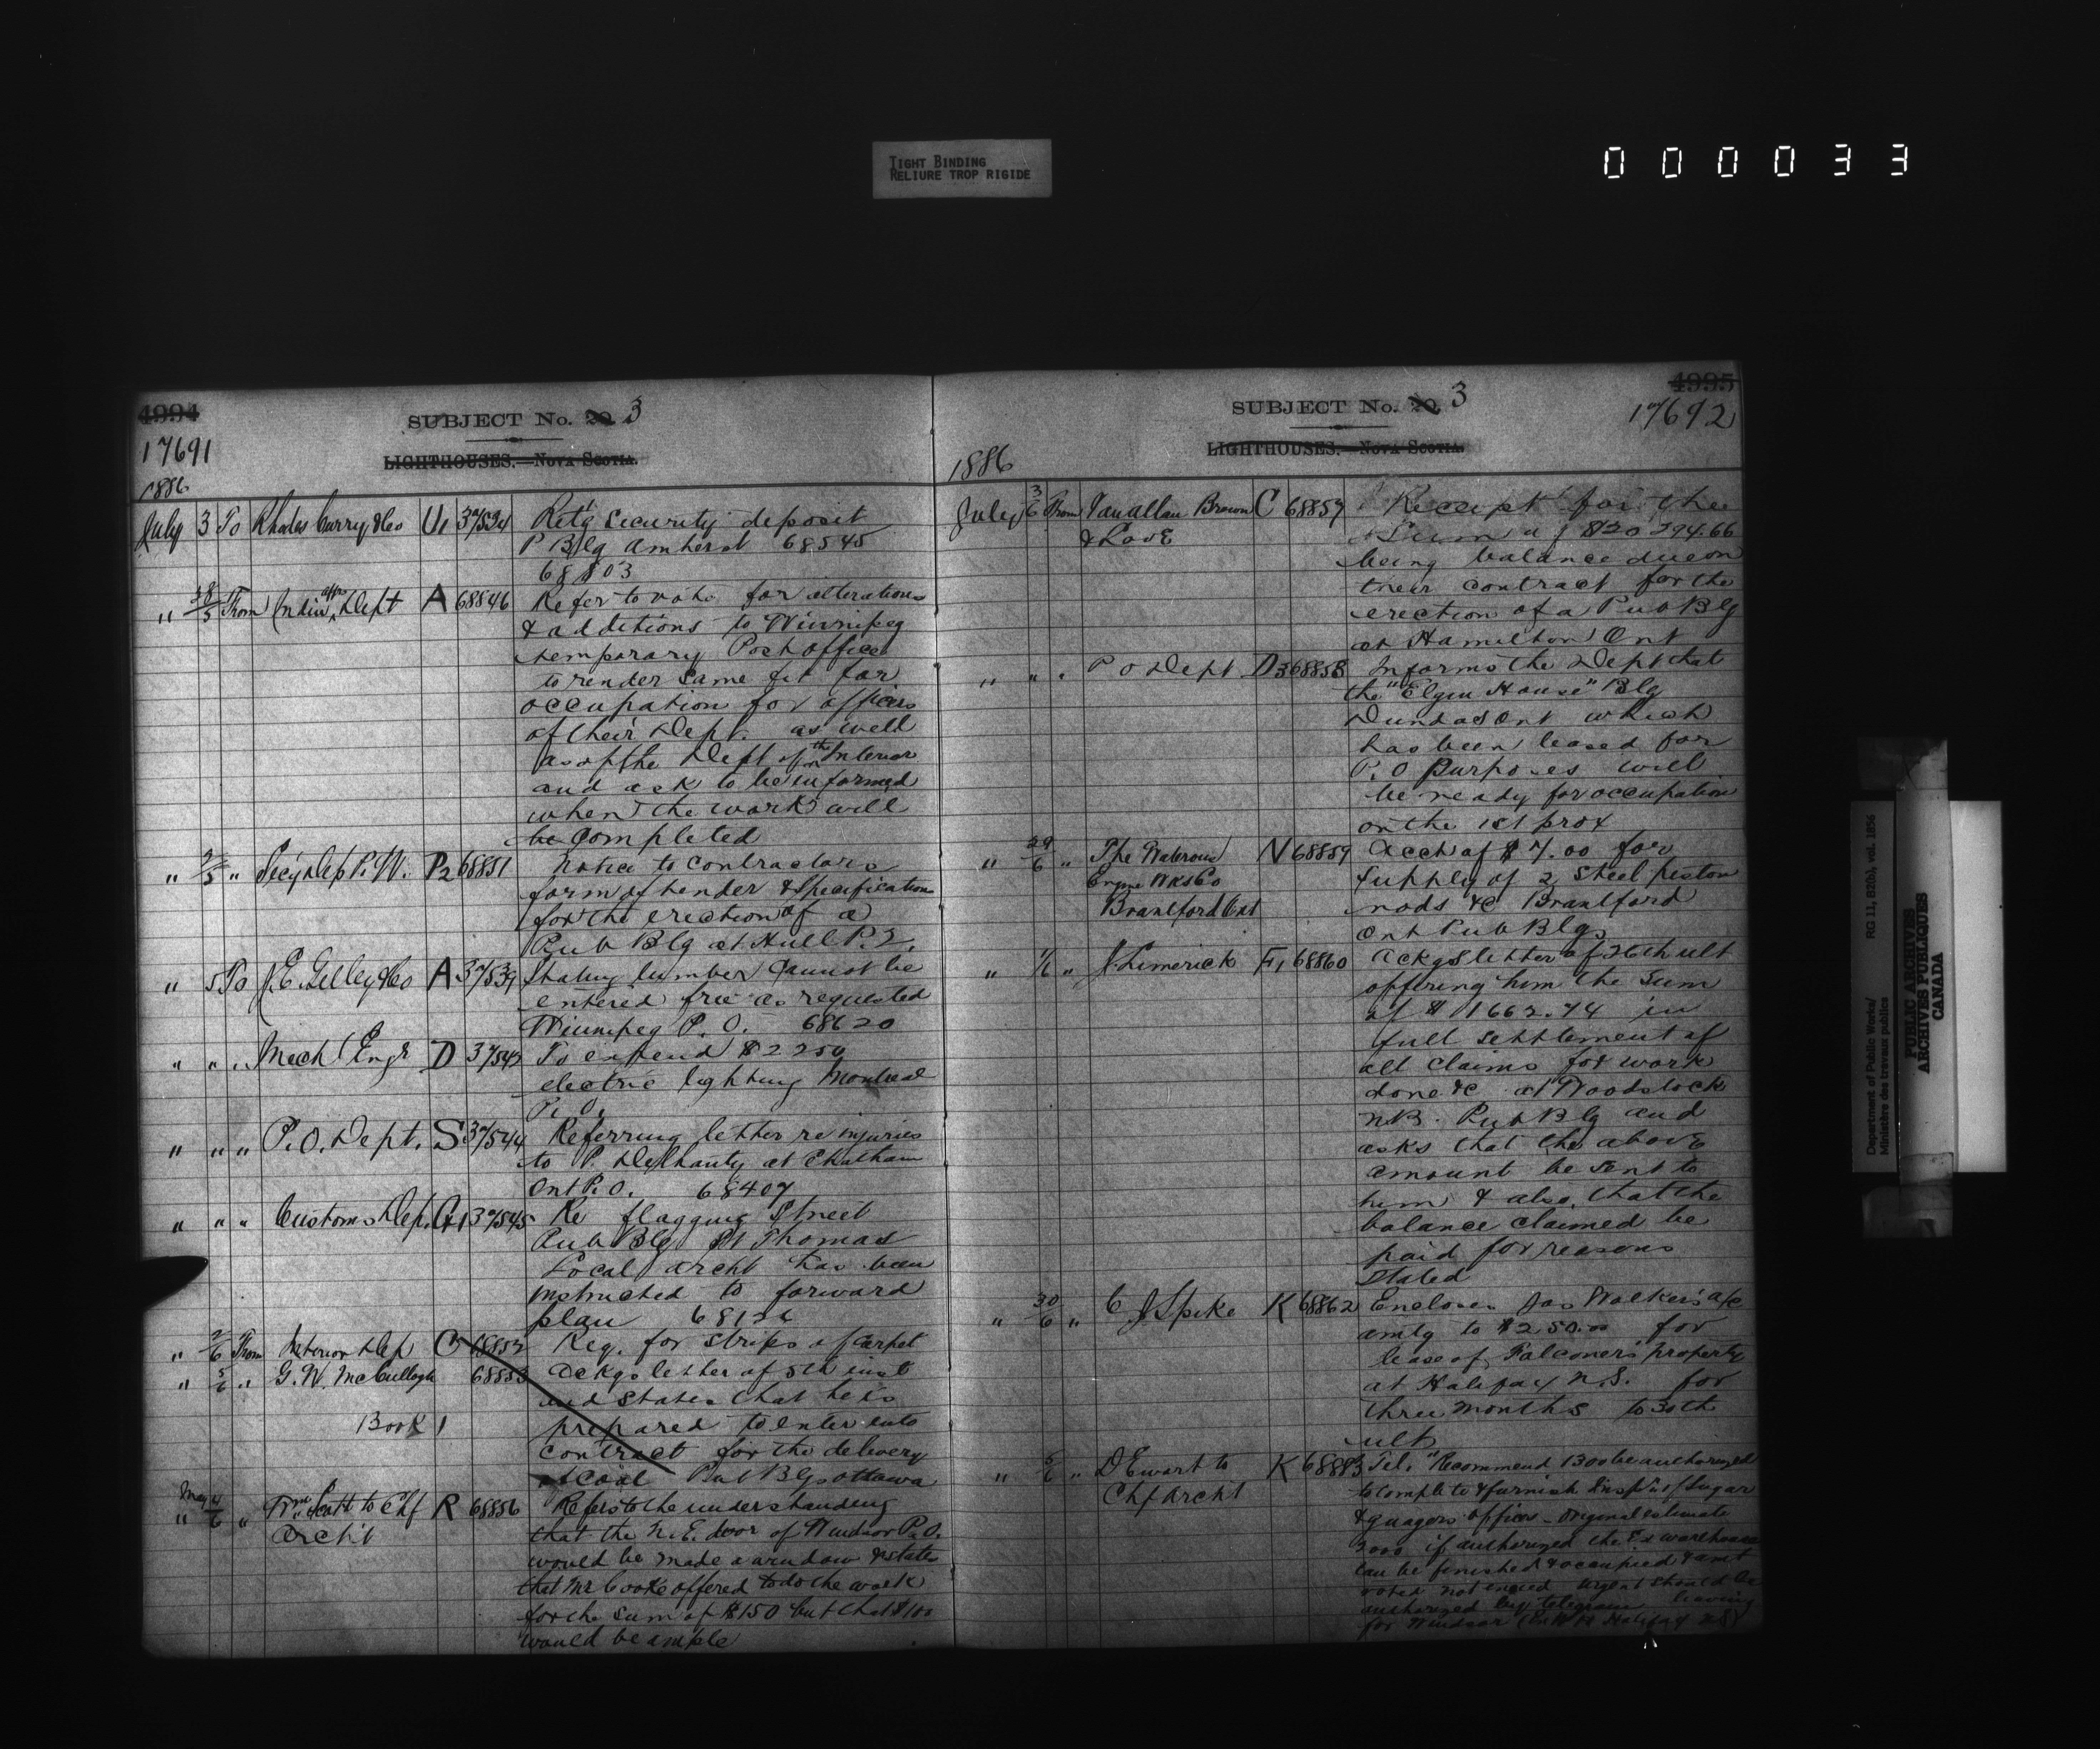 TIGHT BINDING
RELIURE TROP RIGIDE
000033
4994
SUBJECT No. 20 3
17691
LIGHTHOUSES.—NOVA SCOTIA.
1886
July 3 To Rhodes Curry & Co U1 37534 Ret'g Security deposit
P Blg Amherst 68545
68803
" 28/5 From Indian affrs Dept A 68846 Refer to vote for alterations
& additions to Winnipeg
temporary Post office
to render same fit for
occupation for officers
of their Dept. as well
as of the Dept of the Interior
and ask to be informed
when the work will
be completed
" 2/5 " Secy Dep P.W. P2 68851 Notice to contractors
form of tender & Specification
for the erection of a
Pub Blg at Hull P.Q.
" 5 To J.E. Gelley & Co A 37539 Stating lumber cannot be
entered free as requested
Winnipeg P.O. 68620
" " " Mech'l Engr D 37543 To expend $2250
electric lighting Montreal
P.O.
" " " P.O. Dept. S 37544 Referring letter re injuries
to P. Delhanty at Chatham
Ont P.O. 68407
" " " Customs Dep. G1 37545 Re flagging Street
Pub Blg St Thomas
Local archt has been
instructed to forward
plan 68126
" 2/6 From Interior Dep C 68852 Req. for strips of carpet
" 5/6 " G.W. McCullogh 68853 Ackgs letter of 5th inst
and states that he is
Book 1 prepared to enter into
contract for the delivery
of coal Pub Blgs Ottawa
May 4
" 6 " Wm. Scott to Chf R 68856 Refers to the understanding
Archt that the N.E. door of Windsor P.O.
would be made a window & states
that Mr Cooke offered to do the work
for the sum of $150 but that $100
would be ample
4995
SUBJECT No. 20 3
17692
LIGHTHOUSES.—NOVA SCOTIA.
1886
July 3/6 From Vanallan Brown C 68857 Receipt for the
& Love Sum of $20294.66
being balance due on
their contract for the
erection of a Pub Blg
at Hamilton Ont
" " " P O Dept D3 68858 Informs the Dept that
the "Elgin House" Blg
Dundas Ont which
has been leased for
P.O purposes will
be ready for occupation
on the 1st prox
" 29/6 " The Waterous N 68859 Acct of $7.00 for
Engine Wks Co supply of 2 Steel piston
Brantford Ont rods &c Brantford
Ont Pub Blg
" 1/6 " J. Limerick F1 68860 Ackgs letter of 26th ult
offering him the sum
of $1662.74 in
full settlement of
all claims for work
done &c at Woodstock
N.B. Pub Blg and
asks that the above
amount be sent to
him & also, that the
balance claimed be
paid for reasons
stated
" 30/6 " C J Spike K 68862 Encloses Jas Walker's a/c
amtg to $250.00 for
lease of Falconer's property
at Halifax N.S. for
three months to 30th
ult
" 5/6 " D Ewart to K 68883 Tel. "Recommend 1300 be authorized
Chf Archt to complete & furnish Insp's of Sugar
& guagers offices - original estimate
3000 if authorized the Ex warehouse
can be finished & occupied & amt
voted not urgent should be
authorized by telegram leaving
for Windsor Halifax NS)
Department of Public Works/ RG 11, B2(b), vol. 1856
Ministère des travaux publics
PUBLIC ARCHIVES
ARCHIVES PUBLIQUES
CANADA